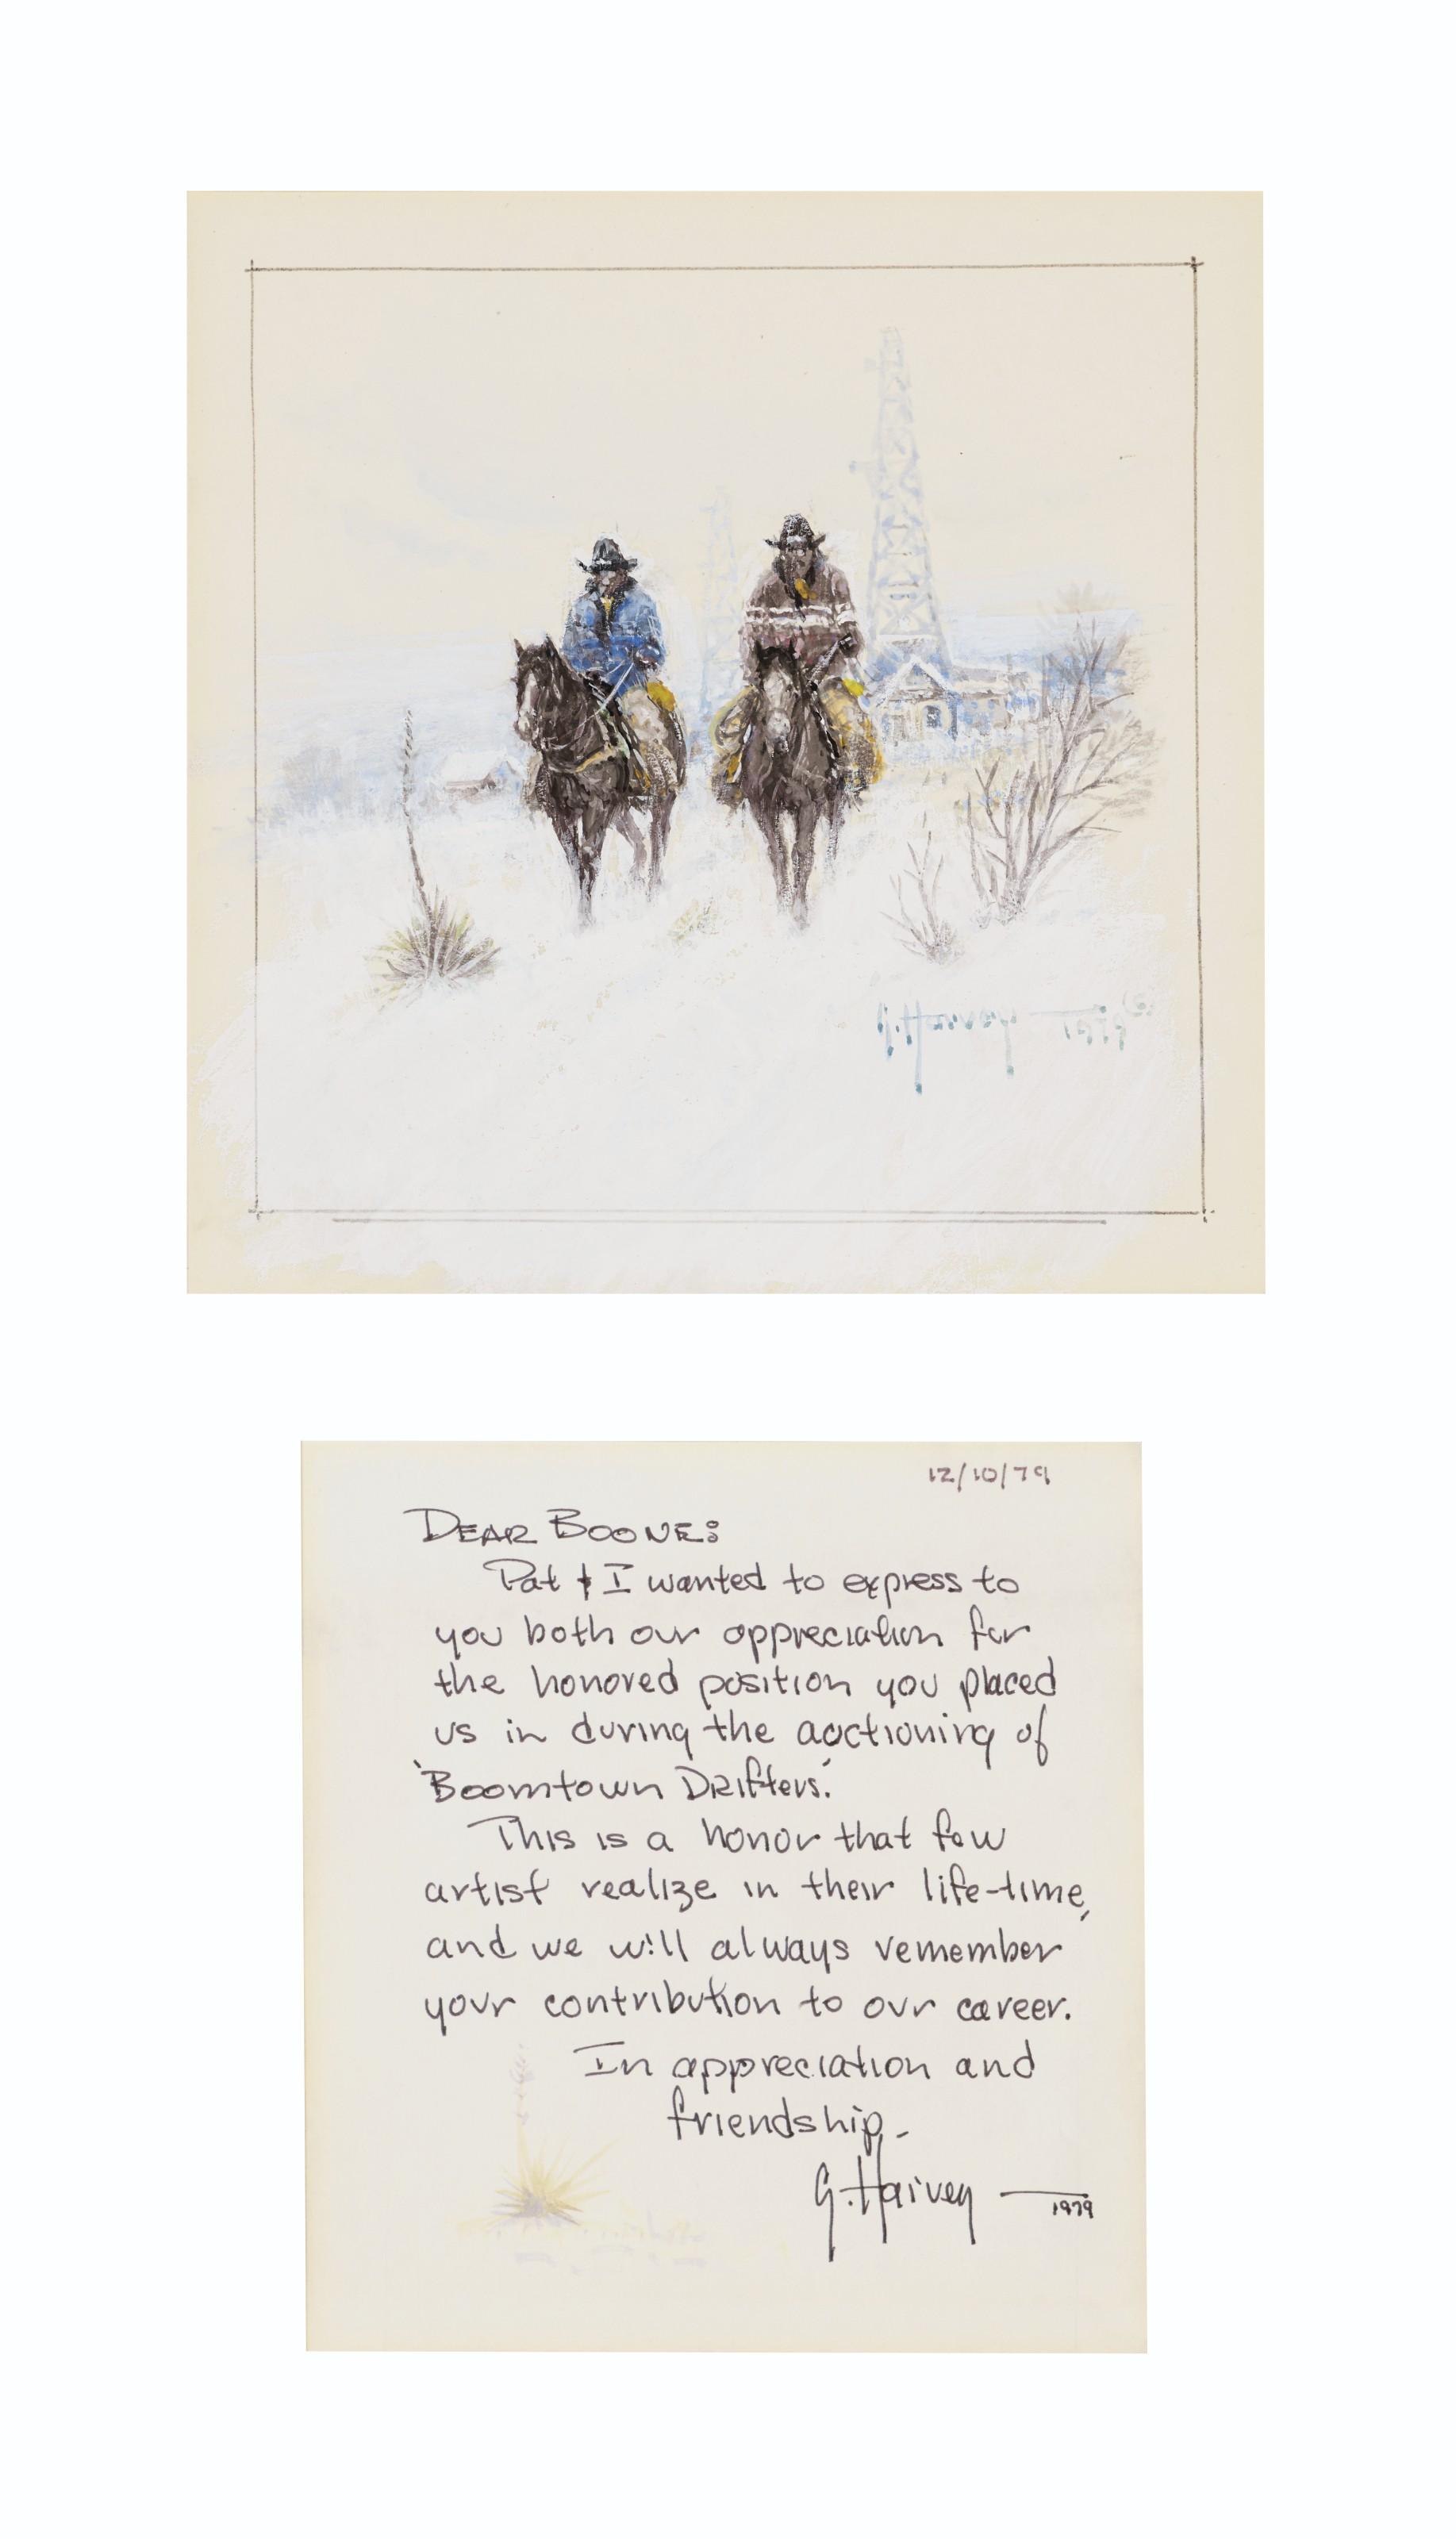 G. Harvey — 1979 ©
12/10/79
DEAR BOONE:
Pat & I wanted to express to
you both our appreciation for
the honored position you placed
us in during the auctioning of
'Boomtown Drifters.'
This is a honor that few
artist realize in their life-time,
and we will always remember
your contribution to our career.
In appreciation and
friendship -
G. Harvey — 1979